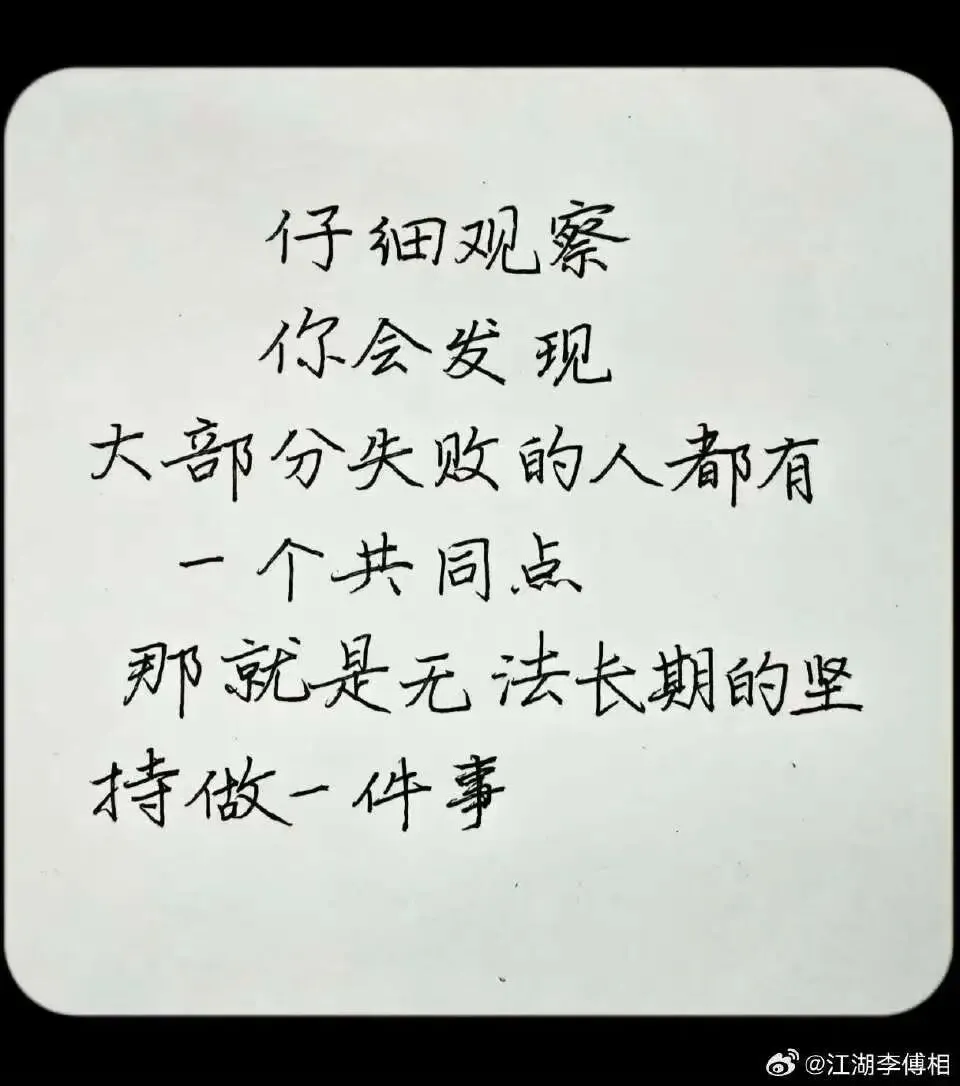 仔细观察
你会发现
大部分失败的人都有
一个共同点
那就是无法长期的坚
持做一件事
@江湖李傅相